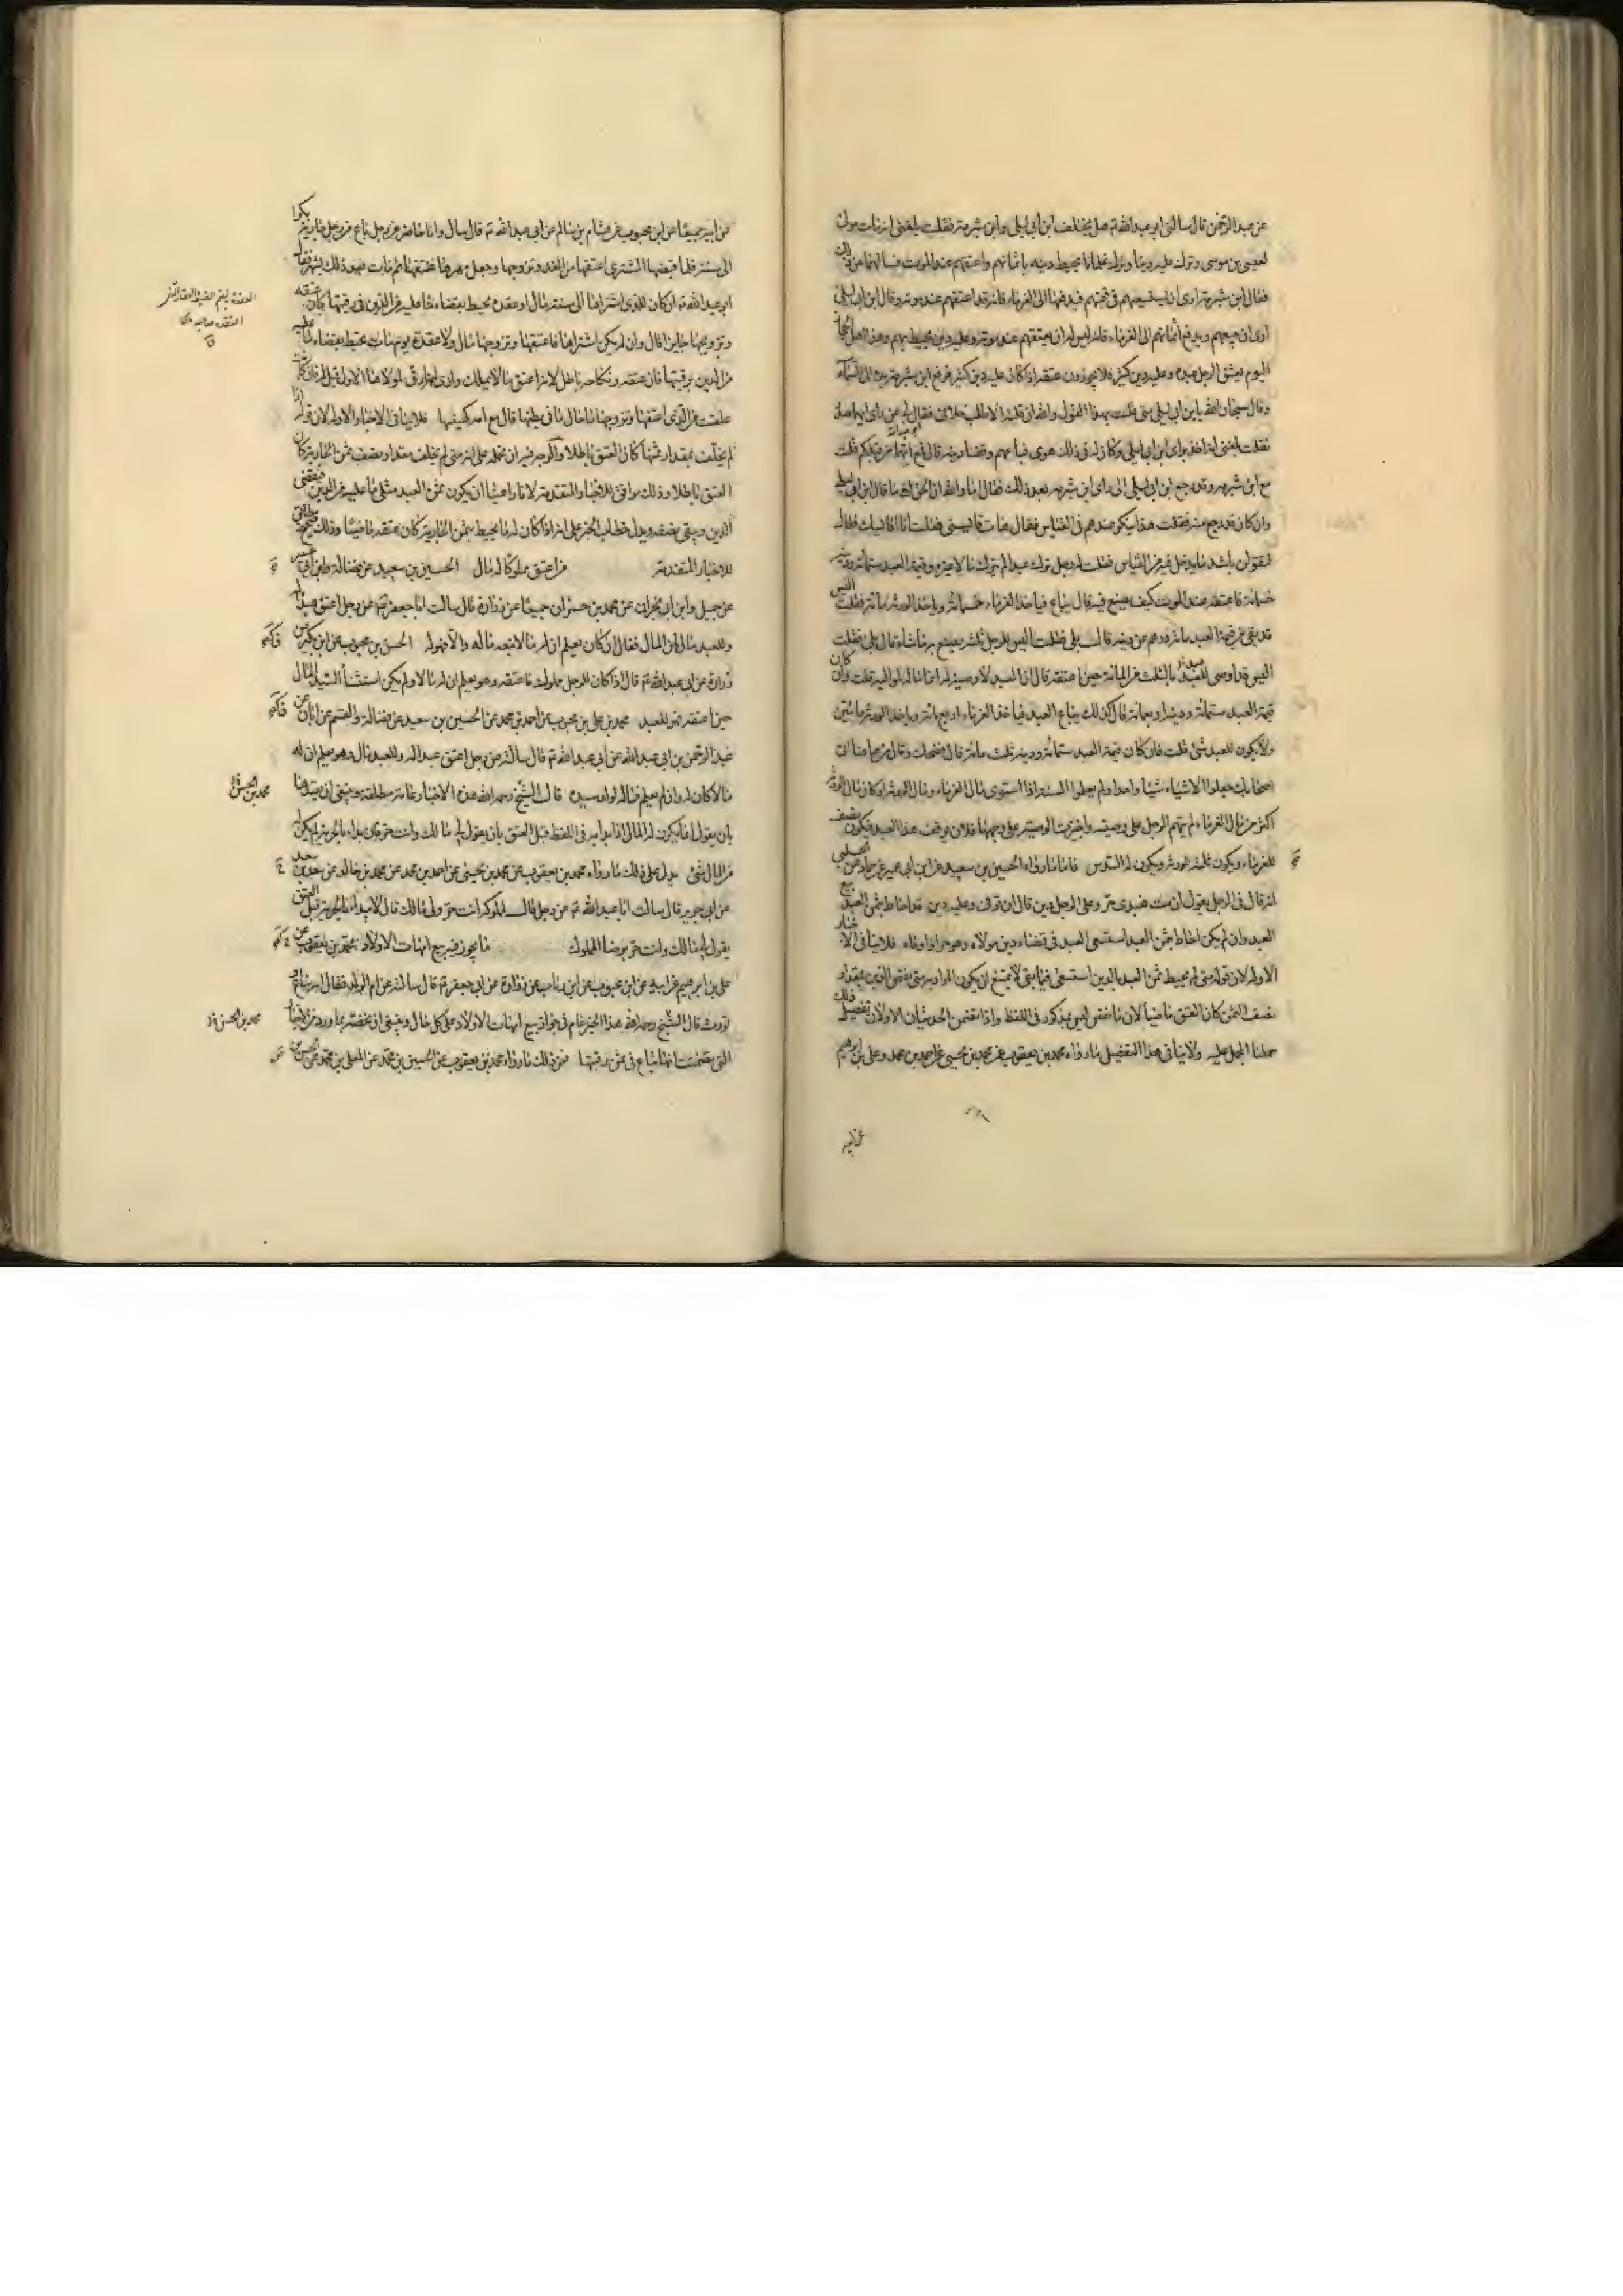 عن عبد الرحمن قال سالنى ابو عبد الله ع هل يختلف ابن ابى ليلى وابن شبرمة فقلت بلغنى انه مات مولى
لعيسى بن موسى وترك عليه دينا وترك غلمانا يحيط دينه باثمانهم واعتقهم عند الموت فسالهما عن ذلك
فقال ابن شبرمة ارى ان يستسعيهم فى قيمتهم فيدفعها الى الغرماء فانه قد اعتقهم عند موته وقال ابن ابى ليلى
ارى ان يبيعهم ويدفع اثمانهم الى الغرماء فانه ليس له ان يعتقهم عند موته وعليه دين يحيط بهم وهذا اهل الحجاز
اليوم يعتق الرجل عبده وعليه دين كثير فلا يجيزون عتقه اذا كان عليه دين كثير فرفع ابن شبرمة يده الى السماء
وقال سبحان الله يا ابن ابى ليلى متى قلت بهذا القول والله ان قلته الا طلب خلافى فقال لى عن راى ايهما صدر
فقلت بلغنى انه اخذ براى ابن ابى ليلى وكان له فى ذلك هوى فباعهم وقضا دينه قال فمع ايهما من قبلكم قلت
مع ابن شبرمه وقد رجع ابن ابى ليلى الى راى ابن شبرمه بعد ذلك فقال اما والله ان الحق لفى ما قال ابن ابى ليلى
وان كان قد رجع عنه فقلت هذا ينكسر عندهم فى القياس فقال هات قايسنى فقلت انا اقايسك فقال
لتقولن باشد ما يدخل فيه من القياس فقلت له رجل ترك عبدا لم يترك مالا غيره وقيمة العبد ستمائة ودينه
خمسمائة فاعتقه عند الموت كيف يصنع فيه قال يباع فياخذ الغرماء خمسمائة وياخذ الورثه مائة فقلت اليس
قد بقى من قيمة العبد مائة درهم عن دينه قال بلى فقلت اليس للرجل ثلثه يصنع به ما شاء قال بلى فقلت
اليس قد اوصى للعبد بالثلث من المائة حين اعتقه قال ان العبد لا وصية له انما ماله لمواليه قلت وان كان
قيمة العبد ستمائة ودينه اربعمائة قال كذلك يباع العبد فياخذ الغرماء اربعمائة وياخذ الورثة مائتين
ولا يكون للعبد شئ قلت فان كان قيمة العبد ستمائة ودينه ثلث مائة قال فضحك وقال من هاهنا اتى
اصحابك جعلوا الاشياء شيئا واحدا ولم يعلموا السنة اذا استوى مال الغرماء ومال الورثة او كان مال الورثة
اكثر من مال الغرماء لم يتهم الرجل على وصيته واجيزت الوصية على وجهها فالان يوقف هذا العبد فيكون نصفه
للغرماء ويكون ثلثه للورثه ويكون له السدس فاما ما رواه الحسين بن سعيد عن ابن ابى عمير عن حماد عن الحلبى
انه قال فى الرجل يقول ان مت فعبدى حر وعلى الرجل دين قال ان توفى وعليه دين قد احاط بثمن العبد بيع
العبد وان لم يكن احاط بثمن العبد استسعى العبد فى قضاء دين مولاه وهو حر اذا وفاه فلا ينافى الاخبار
الاوله لان قوله متى لم يحيط ثمن العبد بالدين استسعى فيما بقى لا يمتنع ان يكون المراد به متى نقص الدين بمقدار
نصف الثمن كان العتق ماضيا لان ما نقص ليس بمذكور فى اللفظ واذا تضمن الحديثان الاولان تفصيل ذلك
حملنا المجمل عليه ولا ينافى هذا التفصيل ما رواه محمد بن يعقوب عن محمد بن يحيى عن احمد بن محمد وعلى بن ابراهيم
عن ابيه
عن ابيه جميعا عن ابن محبوب عن هشام بن سالم عن ابى عبد الله ع قال سال وانا حاضر عن رجل باع من رجل جارية بكرا
الى سنة فلما قبضها المشترى اعتقها من الغد وتزوجها وجعل مهرها عتقها ثم مات بعد ذلك بشهر فقال
ابو عبد الله ع ان كان للذى اشتراها الى سنة مال او عقدة يحيط بقضاء ما عليه من الدين فى رقبتها كان عتقه
وتزويجها جايزا قال وان لم يكن اشتراها فاعتقها وتزوجها مال ولا عقدة يوم مات يحيط بقضاء ما عليه
من الدين برقبتها فان عتقه ونكاحه باطل لانه اعتق ما لا يملك وارى انها رق لمولاها الاول قيل له فان كانت
علقت من الذى اعتقها وتزوجها ما حال ما فى بطنها قال مع امه كهيئتها فلا ينافى الاخبار الاوله لان قوله اذا
لم يخلف بمقدار ثمنها كان العتق باطلا والوجه فيه ان نحمله على انه متى لم يخلف مقدار نصف ثمن الجارية كان
العتق باطلا وذلك موافق للاخبار المتقدمة لانا راعينا ان يكون ثمن العبد مثلى ما عليه من الدين فيقضى
الدين ويبقى نصفه ويدل خطاب الخبر على انه اذا كان له ما يحيط بثمن الجارية كان عتقه ماضيا وذلك مطابق
للاخبار المتقدمة من اعتق مملوكا له مال الحسين بن سعيد عن فضالة وابن ابى عمير
عن جميل وابن ابى نجران عن محمد بن حمران جميعا عن زرارة قال سالت ابا جعفر ع عن رجل اعتق عبدا له
وللعبد مال لمن المال فقال ان كان يعلم ان له مالا تبعه ماله والا فهو له الحسن بن محبوب عن ابن بكير عن
زرارة عن ابى عبد الله ع قال اذا كان للرجل مملوك فاعتقه وهو يعلم ان له مالا ولم يكن استثنا السيد المال
حين اعتقه فهو للعبد محمد بن على بن محبوب عن احمد بن محمد عن الحسين بن سعيد عن فضالة والقسم عن ابان عن
عبد الرحمن بن ابى عبد الله عن ابى عبد الله ع قال سالته عن رجل اعتق عبدا له وللعبد مال وهو يعلم ان له
مالا كان له وان لم يعلم فماله لولد سيده قال الشيخ رحمه الله هذه الاخبار عامة مطلقة وينبغى ان نقيدها
بان يقول انما يكون له المال اذا بدا به فى اللفظ قبل العتق بان يقول لى مالك وانت حر فان بداء بالحرية لم يكن له
من المال شئ يدل على ذلك ما رواه محمد بن يعقوب عن محمد بن يحيى عن احمد بن محمد عن محمد بن خالد عن سعد بن سعد
عن ابى جرير قال سالت ابا عبد الله ع عن رجل قال لمملوكه انت حر ولى مالك قال لا يبدا بالحرية قبل العتق
يقول لى مالك وانت حر برضا المملوك ما يجوز فيه بيع امهات الاولاد محمد بن يعقوب عن
على بن ابراهيم عن ابيه عن ابن محبوب عن ابن رئاب عن زرارة عن ابى جعفر ع قال سالته عن ام الولد فقال امة تباع
وتورث قال الشيخ رحمه الله هذا الخبر عام فى جواز بيع امهات الاولاد على كل حال وينبغى ان نخصه بما ورد من الاخبار
التى تضمنت انها تباع فى ثمن رقبتها فمن ذلك ما رواه محمد بن يعقوب عن الحسين بن محمد عن المعلى بن محمد عن الحسن بن
محمد بن الحسن
محمد بن الحسن